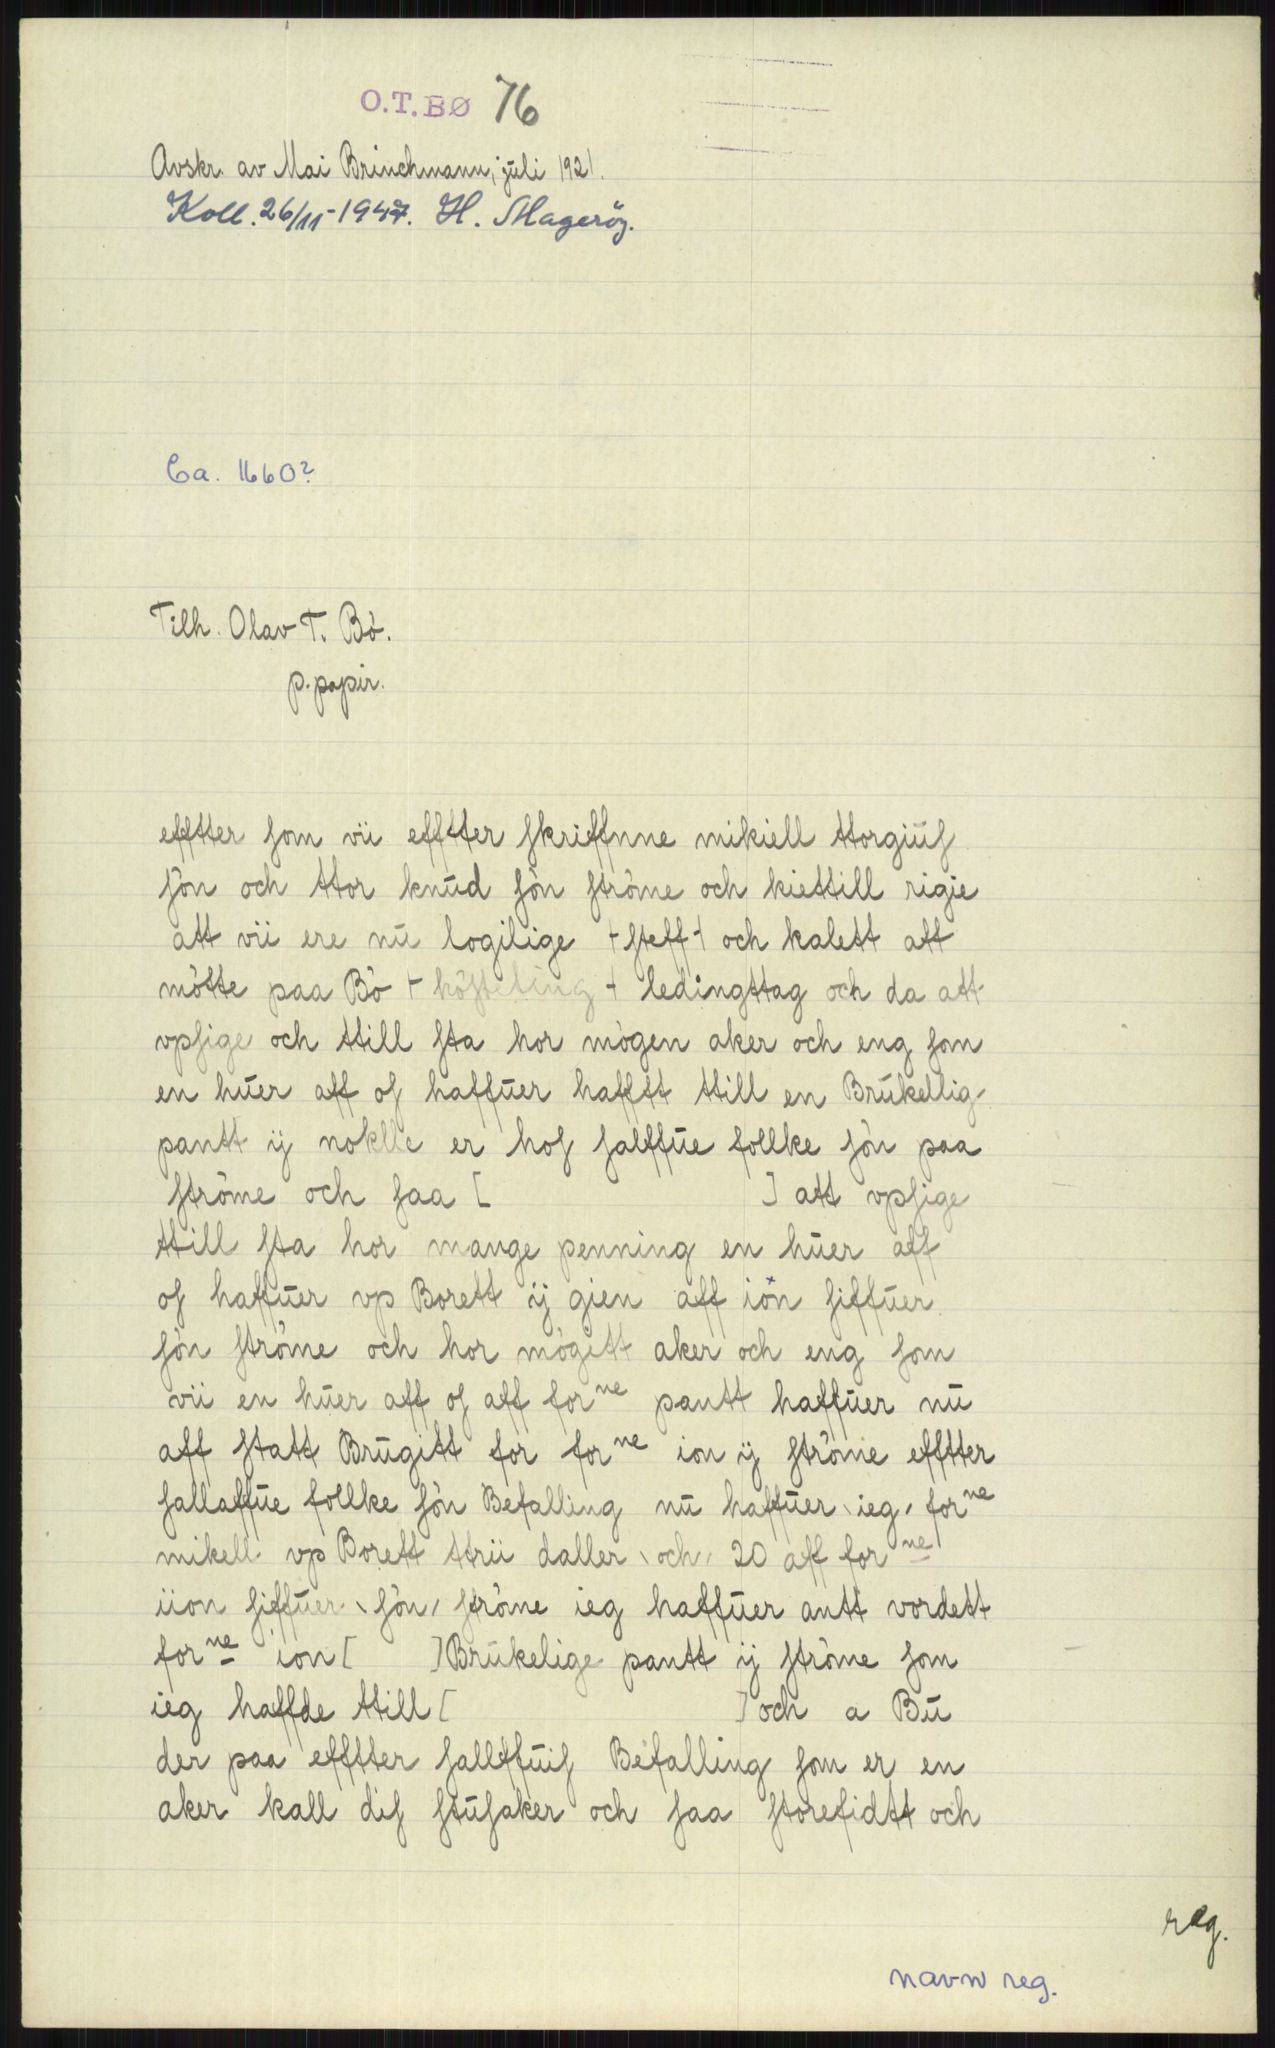 O.T.BØ 76
Avskr. av Mai Brinchmann, juli 1921.
Koll. 26/11-1947. H. Magerøy.
Ca. 1660?
Tilh. Olav T. Bø.
p. papir.
efftter som vii efftter skriffnne mikiell ttorgiuſ
ſøn och ttor knud ſøn ſtrøme och kiettill rigie
att vii ere nu logilige + ſteff + och kalett att
møtte paa Bø + høſteting + ledingttag och da att
vpſige och ttill ſta hor møgen aker och eng ſom
en huer aff oſ haffuer hafftt ttill en Brukellig
pantt ij noklle er hoſ ſalffue follke ſøn paa
ſtrøme och ſaa [ ] att vpſige
ttill ſta hor mange penning en huer aff
oſ haffuer vp Borett ij gien aff iøn ſiffuer
ſøn ſtrøme och hor møgitt aker och eng ſom
vii en huer aff oſ aff forne pantt haffuer nu
aff ſtatt Brugitt for forne ion ij ſtrøme efftter
ſallaffue follke ſøn Befalling nu haffuer \ieg/ forne
mikell vp Borett ttrii daller \och/ 20 aff forne
iion ſiffuer \ſøn/ ſtrøme ieg haffuer antt vordett
forne ion [ ] Brukelige pantt ij ſtrøme ſom
ieg haffde ttill [ ] och a Bu
der paa efftter ſallffuiſ Befalling ſom er en
aker kall diſ ſtuſaker och ſaa ſtorefidtt och
reg.
navn reg.